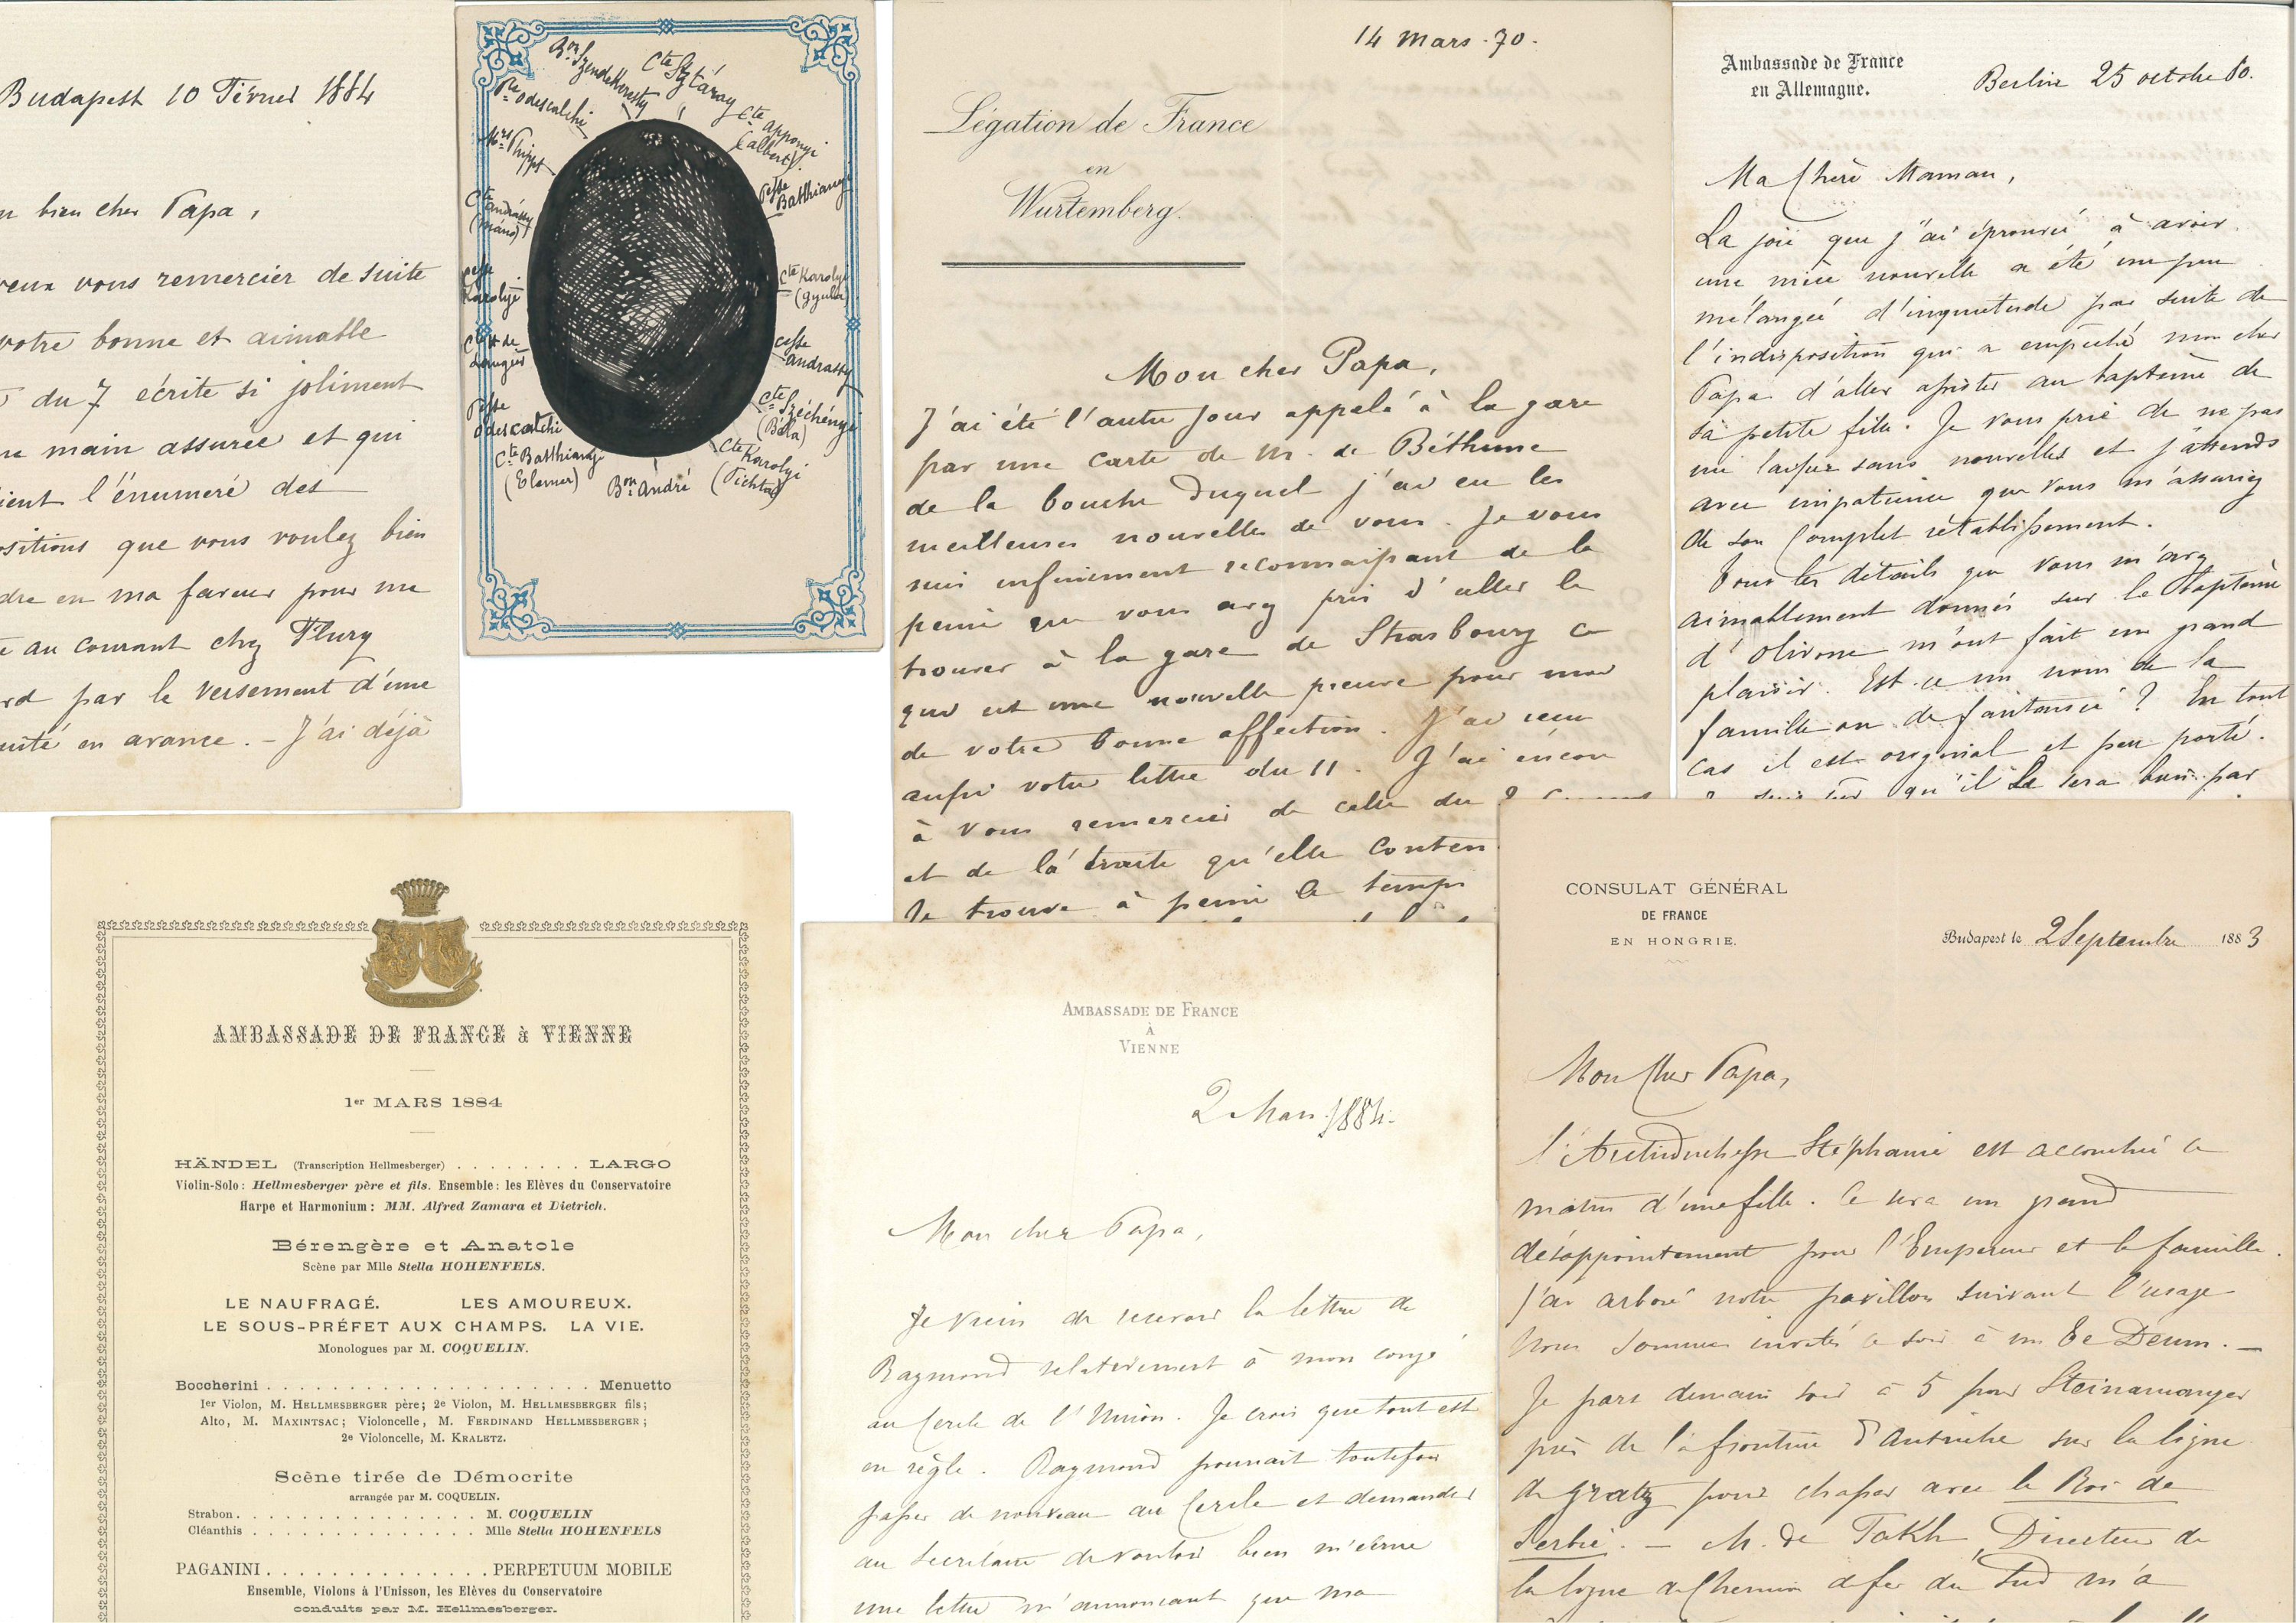 Budapest 10 Février 1884
bien cher Papa,
veux vous remercier de suite
votre bonne et aimable
du 7 écrite si joliment
main assurée et qui
l'énumeré des
que vous voulez bien
en ma faveur pour me
au courant chez Flury
par le versement d'une
en avance. – J'ai déjà
Cte Sztáray
Pce Odescalchi
Cte Apponyi
(Albert)
Mrs Phipps
Pesse
Batthiany
Cte Andrássy
(máno)
Cesse
Karolyi
Cte Karolyi
(Gyula)
Cte de
Cesse
Andrassy
Pesse
Odescalchi
Cte Széchényi
(Béla)
Cte Batthiany
(Elemer)
Bon André
Cte Karolyi
(Pichta)
14 Mars . 70 .
Légation de France
en
Wurtemberg.
Mon cher Papa,
J'ai été l'autre jour appelé à la gare
par une carte de M. de Béthune
de la bouche duquel j'ai eu les
meilleures nouvelles de vous. Je vous
suis infiniment reconnaissant de la
peine que vous avez pris d'aller le
trouver à la gare de Strasbourg ce
qui est une nouvelle preuve pour moi
de votre bonne affection. J'ai reçu
aussi votre lettre du 11. J'ai encore
à vous remercier de celle du
et de la traite qu'elle conten
Je trouve à peine le temps
Ambassade de France
en Allemagne.
Berlin 25 octobre 80.
Ma Chère Maman,
La joie que j'ai éprouvée à avoir
une nièce nouvelle a été un peu
mélangée d'inquiétude par suite de
l'indisposition qui a empêché mon cher
Papa d'aller assister au baptême de
sa petite fille. Je vous prie de ne pas
me laisser sans nouvelles et j'attends
avec impatience que vous m'assuriez
de son complet rétablissement.
Tous les détails que vous m'avez
aimablement donnés sur le baptême
d'Olivone m'ont fait un grand
plaisir. Est-ce un nom de la
famille ou de fantaisie ? En tout
cas il est original et peu porté.
qu'il sera par
AMBASSADE DE FRANCE à VIENNE
1er MARS 1884
HÄNDEL (Transcription Hellmesberger) . . . . . . . . LARGO
Violin-Solo: Hellmesberger père et fils. Ensemble: les Elèves du Conservatoire
Harpe et Harmonium: MM. Alfred Zamara et Dietrich.
Bérengère et Anatole
Scène par Mlle Stella HOHENFELS.
LE NAUFRAGÉ. LES AMOUREUX.
LE SOUS-PRÉFET AUX CHAMPS. LA VIE.
Monologues par M. COQUELIN.
Boccherini . . . . . . . . . . . . . . . . . . . . . Menuetto
1er Violon, M. HELLMESBERGER père; 2e Violon, M. HELLMESBERGER fils;
Alto, M. MAXINTSAC; Violoncelle, M. FERDINAND HELLMESBERGER;
2e Violoncelle, M. KRALETZ.
Scène tirée de Démocrite
arrangée par M. COQUELIN.
Strabon . . . . . . . . . . . . . . . . M. COQUELIN
Cléanthis . . . . . . . . . . . . . . . Mlle Stella HOHENFELS
PAGANINI . . . . . . . . . . . . . . PERPETUUM MOBILE
Ensemble, Violons à l'Unisson, les Elèves du Conservatoire
conduits par M. Hellmesberger.
AMBASSADE DE FRANCE
À
VIENNE
2 Mars 1884.
Mon cher Papa,
Je viens de recevoir la lettre de
Raymond relativement à mon congé
au Cercle de l'Union. Je crois que tout est
en règle. Raymond pourrait toutefois
passer de nouveau au Cercle et demander
au Secrétaire de vouloir bien m'écrire
une lettre m'annonçant que ma
CONSULAT GÉNÉRAL
DE FRANCE
EN HONGRIE.
Budapest le 2 Septembre 1883
Mon Cher Papa,
l'Archiduchesse Stéphanie est accouchée ce
matin d'une fille. Ce sera un grand
désappointement pour l'Empereur et la famille.
J'ai arboré notre pavillon suivant l'usage
Nous sommes invités ce soir à un Te Deum. –
Je pars demain soir à 5 pour Steinamanger
près de la frontière d'Autriche sur la ligne
de Gratz pour chasser avec le Roi de
Serbie. – M. de Takh, Directeur de
la ligne de Chemin de fer du Sud m'a